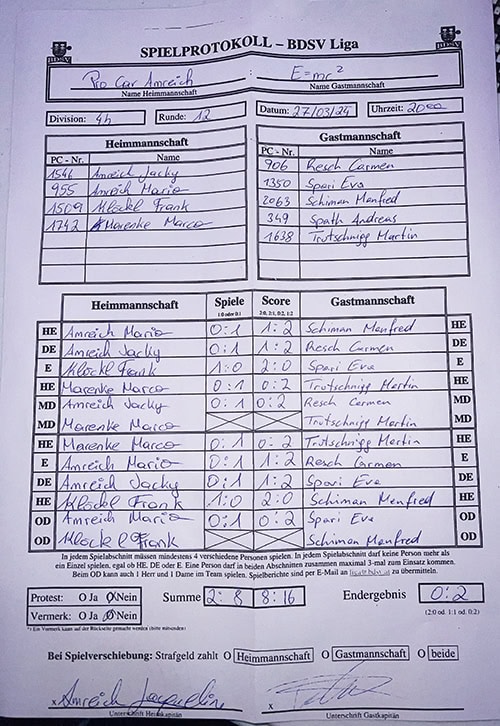 BDSV
SPIELPROTOKOLL – BDSV Liga
BDSV
Pro Car Amreich : E=mc²
Name Heimmannschaft Name Gastmannschaft
Division: 4h Runde: 12 Datum: 27/03/24 Uhrzeit: 20
Heimmannschaft
PC - Nr. Name
1546 Amreich Jacky
955 Amreich Mario
1509 Klöckl Frank
1742 Marenke Marco
Gastmannschaft
PC - Nr. Name
906 Resch Carmen
1350 Spari Eva
2063 Schiman Manfred
349 Spath Andreas
1638 Trutschnigg Martin
Heimmannschaft Spiele Score Gastmannschaft
1:0 oder 0:1 2:0, 2:1, 0:2, 1:2
HE Amreich Mario 0:1 1:2 Schiman Manfred HE
DE Amreich Jacky 0:1 1:2 Resch Carmen DE
E Klöckl Frank 1:0 2:0 Spari Eva E
HE Marenke Marco 0:1 0:2 Trutschnigg Martin HE
MD Amreich Jacky 0:1 0:2 Resch Carmen MD
MD Marenke Marco Trutschnigg Martin MD
HE Marenke Marco 0:1 0:2 Trutschnigg Martin HE
E Amreich Mario 0:1 1:2 Resch Carmen E
DE Amreich Jacky 0:1 1:2 Spari Eva DE
HE Klöckl Frank 1:0 2:0 Schiman Manfred HE
OD Amreich Mario 0:1 0:2 Spari Eva OD
OD Klöckl Frank Schiman Manfred OD
In jedem Spielabschnitt müssen mindestens 4 verschiedene Personen spielen. In jedem Spielabschnitt darf keine Person mehr als
ein Einzel spielen, egal ob HE, DE oder E. Eine Person darf in beiden Abschnitten zusammen maximal 3-mal zum Einsatz kommen.
Beim OD kann auch 1 Herr und 1 Dame im Team spielen. Spielberichte sind per E-Mail an zu übermitteln.
Protest: O Ja O Nein Summe 2:8 8:16 Endergebnis 0:2
Vermerk: O Ja O Nein (2:0 od. 1:1 od. 0:2)
*) Ein Vermerk kann auf der Rückseite gemacht werden (bitte mitsenden)
Bei Spielverschiebung: Strafgeld zahlt O Heimmannschaft O Gastmannschaft O beide
x Amreich Jacqueline x
Unterschrift Heimkapitän Unterschrift Gastkapitän